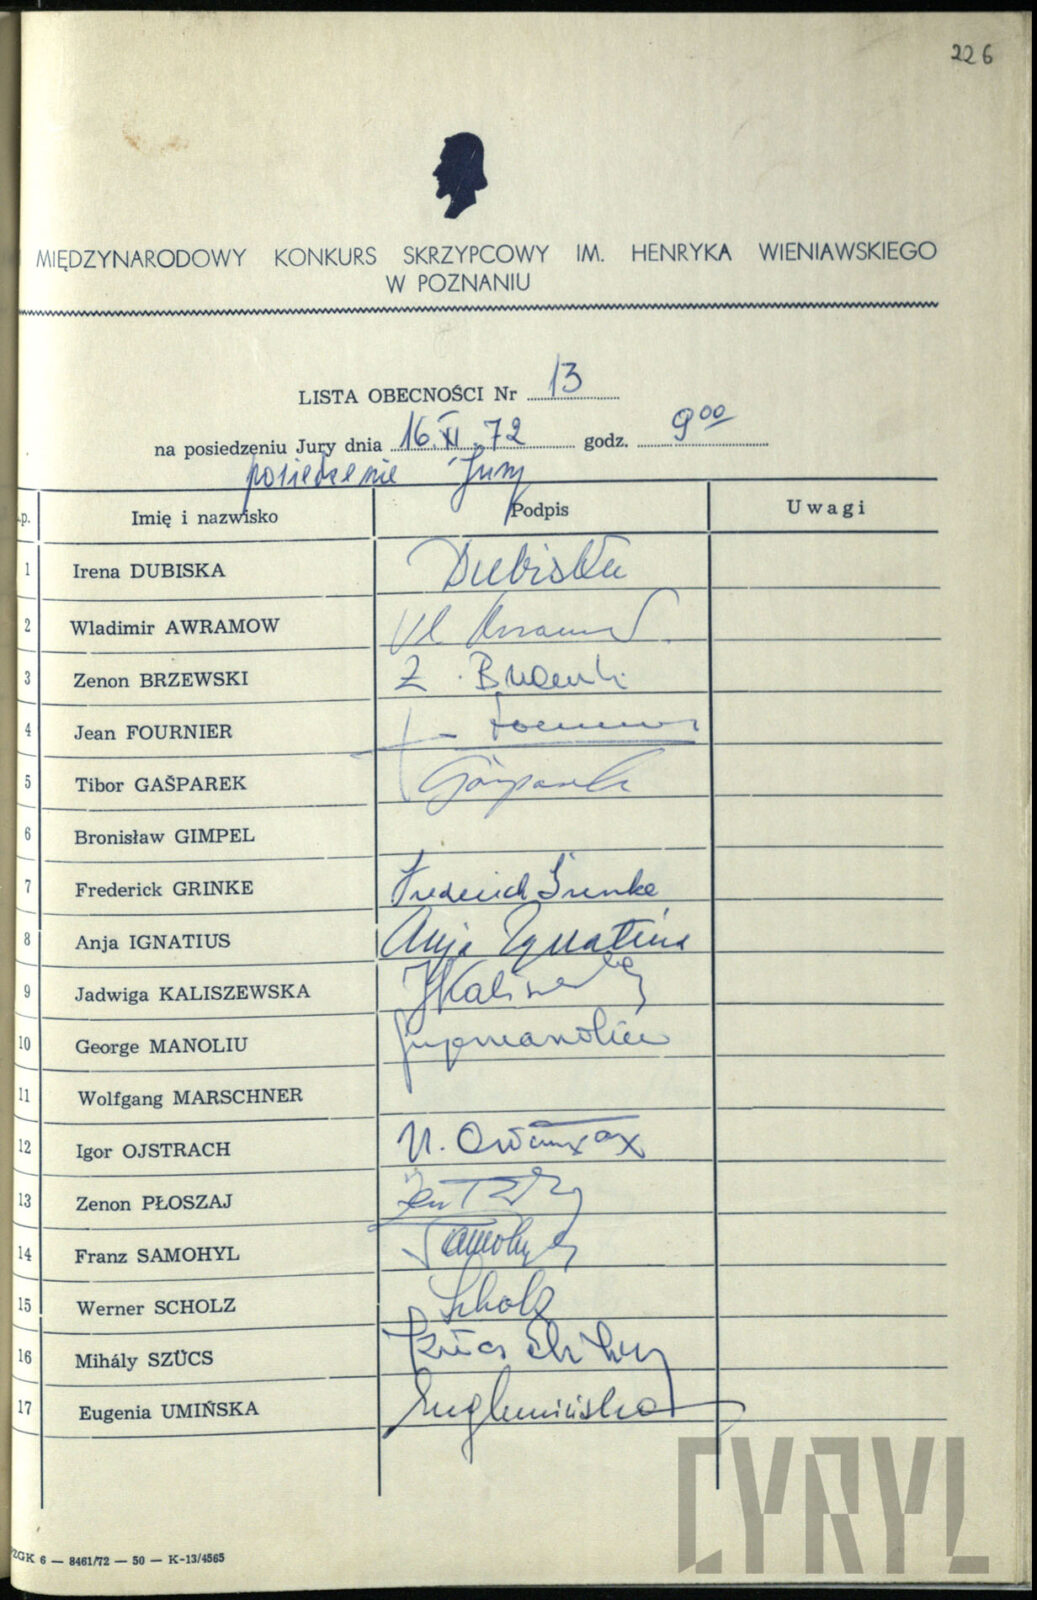 226
MIĘDZYNARODOWY KONKURS SKRZYPCOWY IM. HENRYKA WIENIAWSKIEGO
W POZNANIU
LISTA OBECNOŚCI Nr 13
na posiedzeniu Jury dnia 16.XI.72 godz. 9⁰⁰
posiedzenie Jury
Lp. Imię i nazwisko Podpis Uwagi
1 Irena DUBISKA Dubiska
2 Wladimir AWRAMOW Vl
3 Zenon BRZEWSKI Z.
4 Jean FOURNIER
5 Tibor GAŠPAREK Gašparek
6 Bronisław GIMPEL
7 Frederick GRINKE Frederick Grinke
8 Anja IGNATIUS Anja Ignatius
9 Jadwiga KALISZEWSKA JKaliszewska
10 George MANOLIU
11 Wolfgang MARSCHNER
12 Igor OJSTRACH И. Ойстрах
13 Zenon PŁOSZAJ
14 Franz SAMOHYL Samohyl
15 Werner SCHOLZ Scholz
16 Mihály SZÜCS
17 Eugenia UMIŃSKA EugUmińska
ZGK 6 — 8461/72 — 50 — K-13/4565
CYRYL